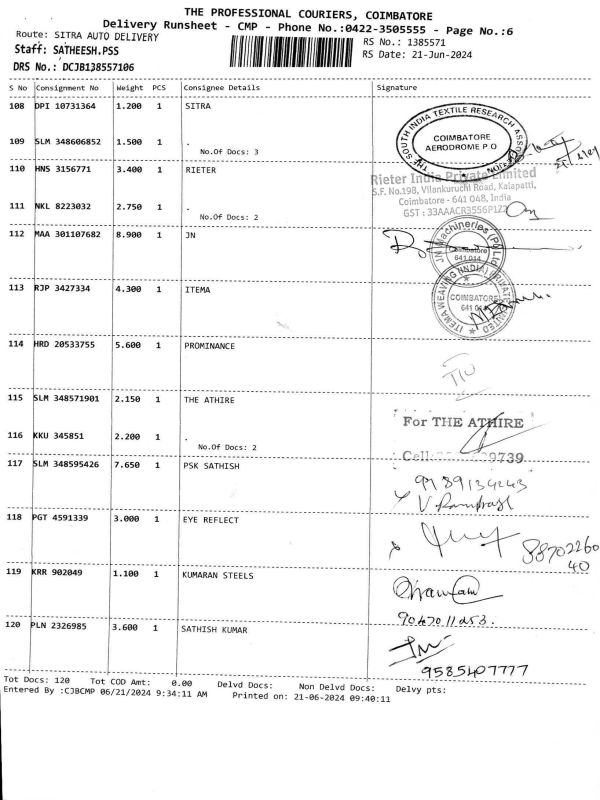 THE PROFESSIONAL COURIERS, COIMBATORE
Delivery Runsheet - CMP - Phone No.:0422-3505555 - Page No.:6
Route: SITRA AUTO DELIVERY
RS No.: 1385571
Staff: SATHEESH.PSS
RS Date: 21-Jun-2024
DRS No.: DCJB138557106
S No Consignment No Weight PCS Consignee Details Signature
108 DPI 10731364 1.200 1 SITRA
THE SOUTH INDIA TEXTILE RESEARCH
COIMBATORE
AERODROME P O
109 SLM 348606852 1.500 1 .
No.Of Docs: 3
110 HNS 3156771 3.400 1 RIETER
Rieter India Private Limited
S.F. No.198, Vilankuruchi Road, Kalapatti,
Coimbatore - 641 048, India
GST : 33AAACR3556P1Z2
111 NKL 8223032 2.750 1 .
No.Of Docs: 2
112 MAA 301107682 8.900 1 JN
JN Machineries (P) Ltd
Coimbatore
641 014
113 RJP 3427334 4.300 1 ITEMA
ITEMA WEAVING (INDIA) PRIVATE LIMITED
COIMBATORE
641 014
114 HRD 20533755 5.600 1 PROMINANCE
115 SLM 348571901 2.150 1 THE ATHIRE
For THE ATHIRE
116 KKU 345851 2.200 1 .
No.Of Docs: 2
Cell: 9739
117 SLM 348595426 7.650 1 PSK SATHISH
118 PGT 4591339 3.000 1 EYE REFLECT
88702260
40
119 KRR 902049 1.100 1 KUMARAN STEELS
120 PLN 2326985 3.600 1 SATHISH KUMAR
9585407777
Tot Docs: 120 Tot COD Amt: 0.00 Delvd Docs: Non Delvd Docs: Delvy pts:
Entered By :CJBCMP 06/21/2024 9:34:11 AM Printed on: 21-06-2024 09:40:11